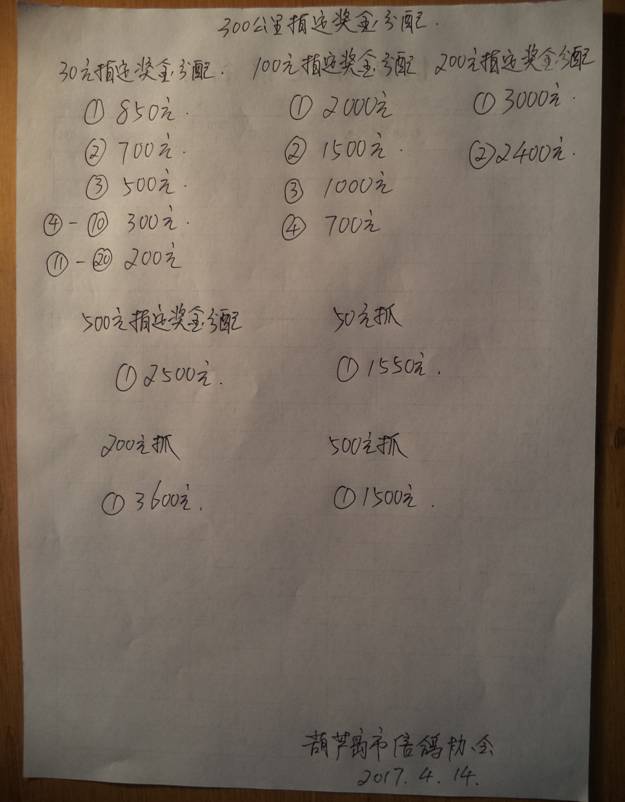 300公里指定奖金分配.
30元指定奖金分配. 100元指定奖金分配 200元指定奖金分配
① 850元. ① 2000元 ① 3000元.
② 700元. ② 1500元. ② 2400元.
③ 500元. ③ 1000元
④-⑩ 300元. ④ 700元
⑪-⑳ 200元
500元指定奖金分配 50元抓
① 2500元. ① 1550元.
200元抓 500元抓
① 3600元. ① 1500元.
葫芦岛市信鸽协会
2017.4.14.